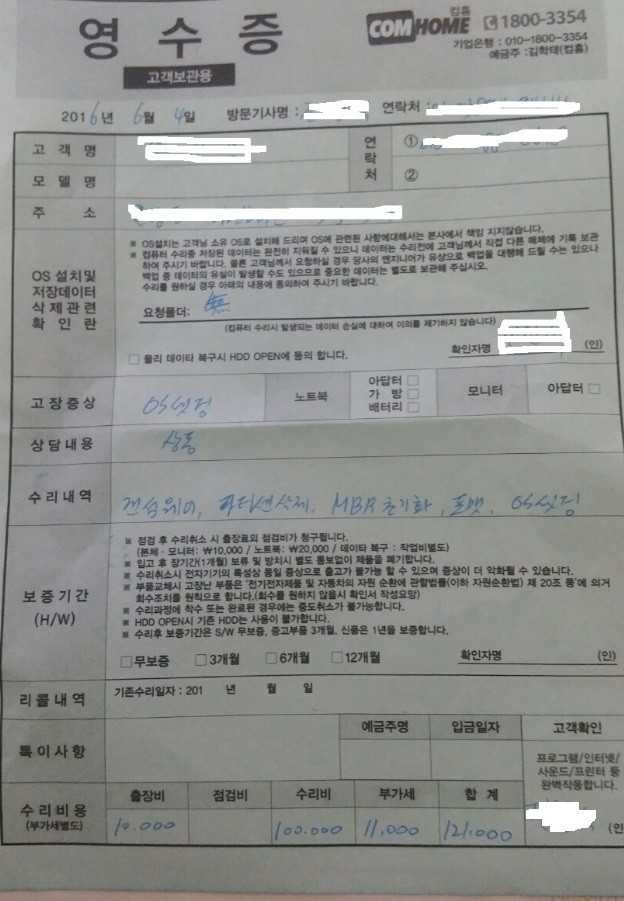 영수증
고객보관용
COMHOME 컴홈
1800-3354
기업은행 : 010-1800-3354
예금주 : 김학태(컴홈)
2016년 6월 4일 방문기사명 : 연락처 :
고객명
연락처 ① ②
모델명
주소
OS 설치및 저장데이터 삭제관련 확인란
※ OS설치는 고객님 소유 OS로 설치해 드리며 OS에 관련된 사항에대해서는 본사에서 책임 지지않습니다.
※ 컴퓨터 수리중 저장된 데이터는 완전히 지워질 수 있으니 데이터는 수리전에 고객님께서 직접 다른 매체에 기록 보관
하여 주시기 바랍니다. 물론 고객님께서 요청하실 경우 당사의 엔지니어가 유상으로 백업을 대행해 드릴 수는 있으나
백업 중 데이터의 유실이 발생할 수도 있으므로 중요한 데이터는 별도로 보관해 주십시오.
수리를 원하실 경우 아래의 내용에 동의하여 주시기 바랍니다.
요청폴더: 無
(컴퓨터 수리시 발생되는 데이터 손실에 대하여 이의를 제기하지 않습니다)
□ 물리 데이타 복구시 HDD OPEN에 동의 합니다. 확인자명 (인)
고장증상 OS셋팅 노트북 아답터 □ 가방 □ 배터리 □ 모니터 아답터 □
상담내용 상동
수리내역 랜섬웨어, 파티션삭제, MBR초기화, 포맷, OS셋팅
보증기간 (H/W)
※ 점검 후 수리취소 시 출장료의 점검비가 청구됩니다.
(본체 · 모니터: ₩10,000 / 노트북: ₩20,000 / 데이타 복구 : 작업비별도)
※ 입고 후 장기간(1개월) 보류 및 방치시 별도 통보없이 제품을 폐기합니다.
※ 수리취소시 전자기기의 특성상 동일 증상으로 출고가 불가능 할 수 있으며 증상이 더 악화될 수 있습니다.
※ 부품교체시 고장난 부품은 '전기전자제품 및 자동차의 자원 순환에 관할법률(이하 자원순환법) 제 20조 등'에 의거
회수조치를 원칙으로 합니다.(회수를 원하지 않을시 확인서 작성요망)
※ 수리과정에 착수 또는 완료된 경우에는 중도취소가 불가능합니다.
※ HDD OPEN시 기존 HDD는 사용이 불가합니다.
※ 수리후 보증기간은 S/W 무보증, 중고부품 3개월, 신품은 1년을 보증합니다.
□무보증 □3개월 □6개월 □12개월 확인자명 (인)
리콜내역 기존수리일자 : 201 년 월 일
특이사항 예금주명 입금일자 고객확인
프로그램/인터넷/
사운드/프린터 등
완벽작동합니다.
수리비용 (부가세별도) 출장비 점검비 수리비 부가세 합계
10.000 100.000 11,000 121.000 (인